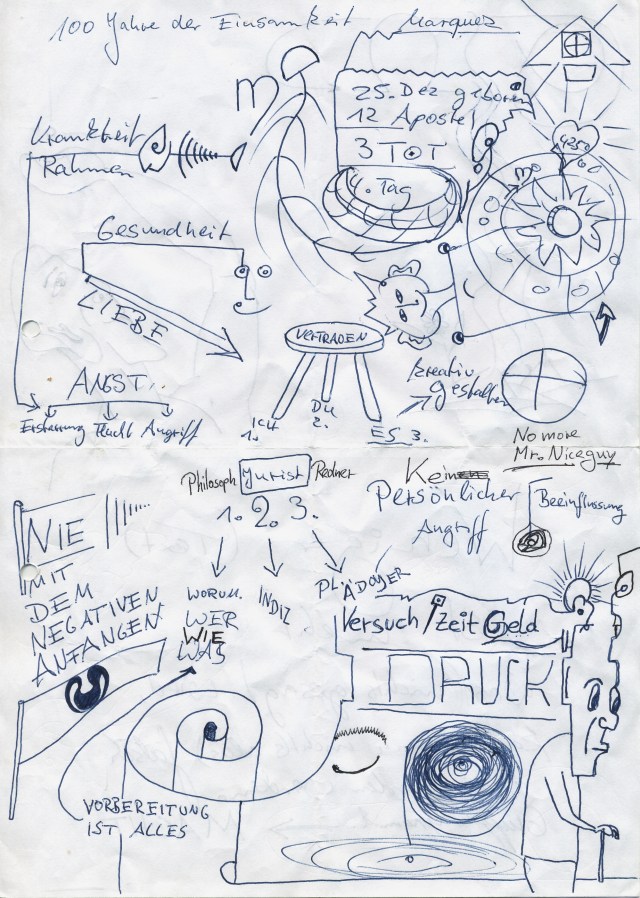 100 Jahre der Einsamkeit Marquez
m
25. Dez geboren
12 Apostel
3 TOT
4. Tag
Krankheit
Rahmen
4250
60
m
Gesundheit
LIEBE
VERTRAUEN
ANGST...
Erstarrung Flucht Angriff
ICH
1.
DU
2.
ES 3.
kreativ
gestalten
No more
Mr. Niceguy
Philosoph Jurist Redner
1. 2. 3.
Kein
Persönlicher
Angriff
Beeinflussung
NIE
MIT
DEM
NEGATIVEN
ANFANGEN
WORUM
WER
WIE
WAS
INDIZ
PLÄDOYER
Versuch Zeit Geld
DRUCK
VORBEREITUNG
IST ALLES